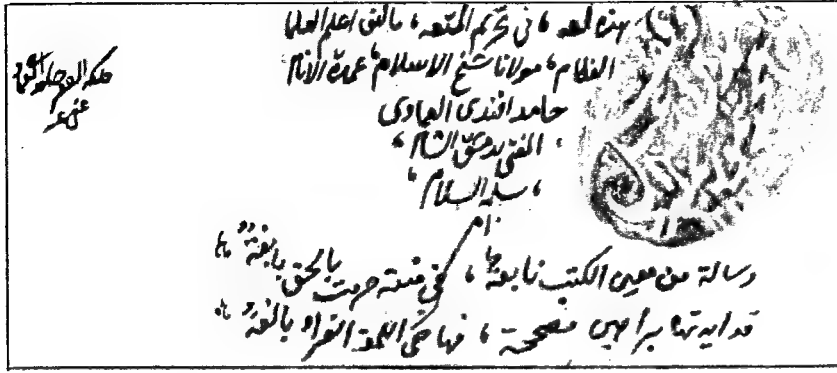 هذه لمعه، في تحريم المتعه، تأليف اعلم العلما
العلام، مولانا شيخ الاسلام، عمدة الانام
حامد افندي العمادي
المفتي بدمشق الشام،
، سلمه السلام،
ام
رسالة من معين الكتب نابعة، في متعة حرمت بالحق بالغة
قد ايدتها براهين مصححة، فها هي اللمعة الغراء بالغة
ملكه الفقير
عفي عنه